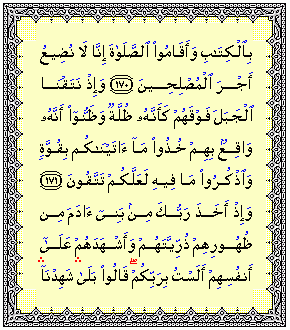 بِٱلْكِتَٰبِ وَأَقَامُوا۟ ٱلصَّلَوٰةَ إِنَّا لَا نُضِيعُ
أَجْرَ ٱلْمُصْلِحِينَ ١٧٠ وَإِذْ نَتَقْنَا
ٱلْجَبَلَ فَوْقَهُمْ كَأَنَّهُۥ ظُلَّةٌ وَظَنُّوٓا۟ أَنَّهُۥ
وَاقِعٌۢ بِهِمْ خُذُوا۟ مَآ ءَاتَيْنَٰكُم بِقُوَّةٍ
وَٱذْكُرُوا۟ مَا فِيهِ لَعَلَّكُمْ تَتَّقُونَ ١٧١
وَإِذْ أَخَذَ رَبُّكَ مِنۢ بَنِىٓ ءَادَمَ مِن
ظُهُورِهِمْ ذُرِّيَّتَهُمْ وَأَشْهَدَهُمْ عَلَىٰٓ
أَنفُسِهِمْ أَلَسْتُ بِرَبِّكُمْ ۖ قَالُوا۟ بَلَىٰ ۛ شَهِدْنَآ ۛ